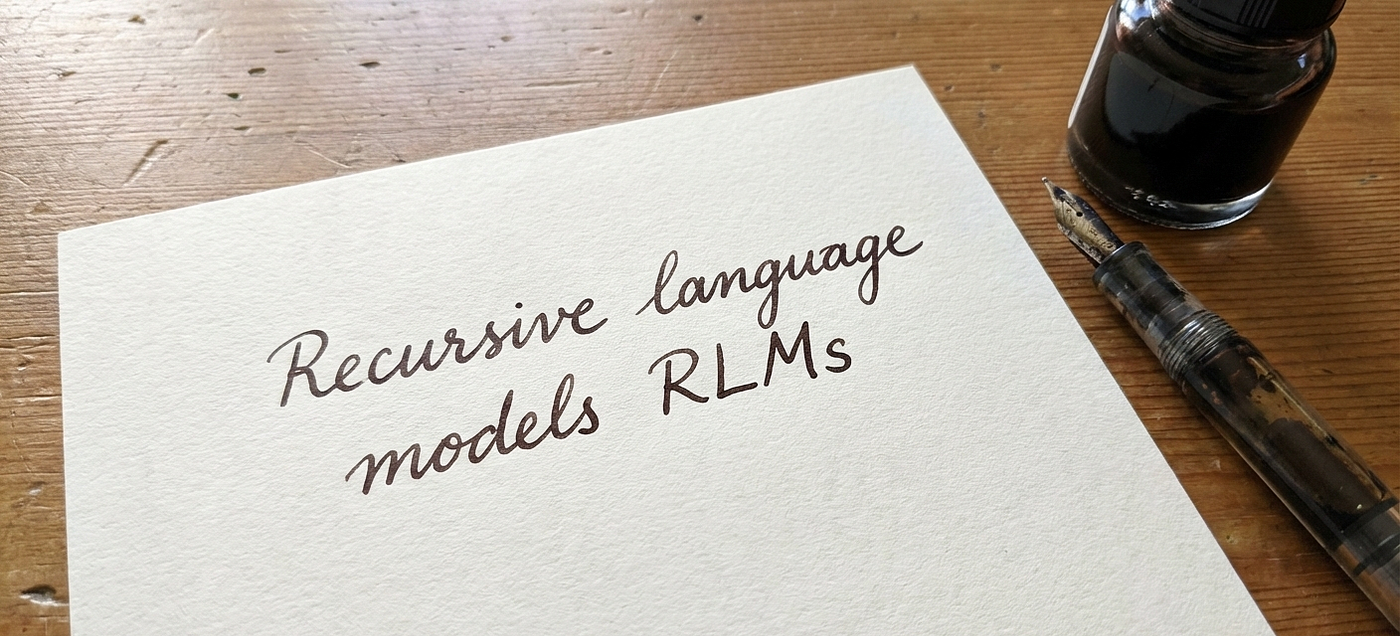 Recursive language
models RLMs